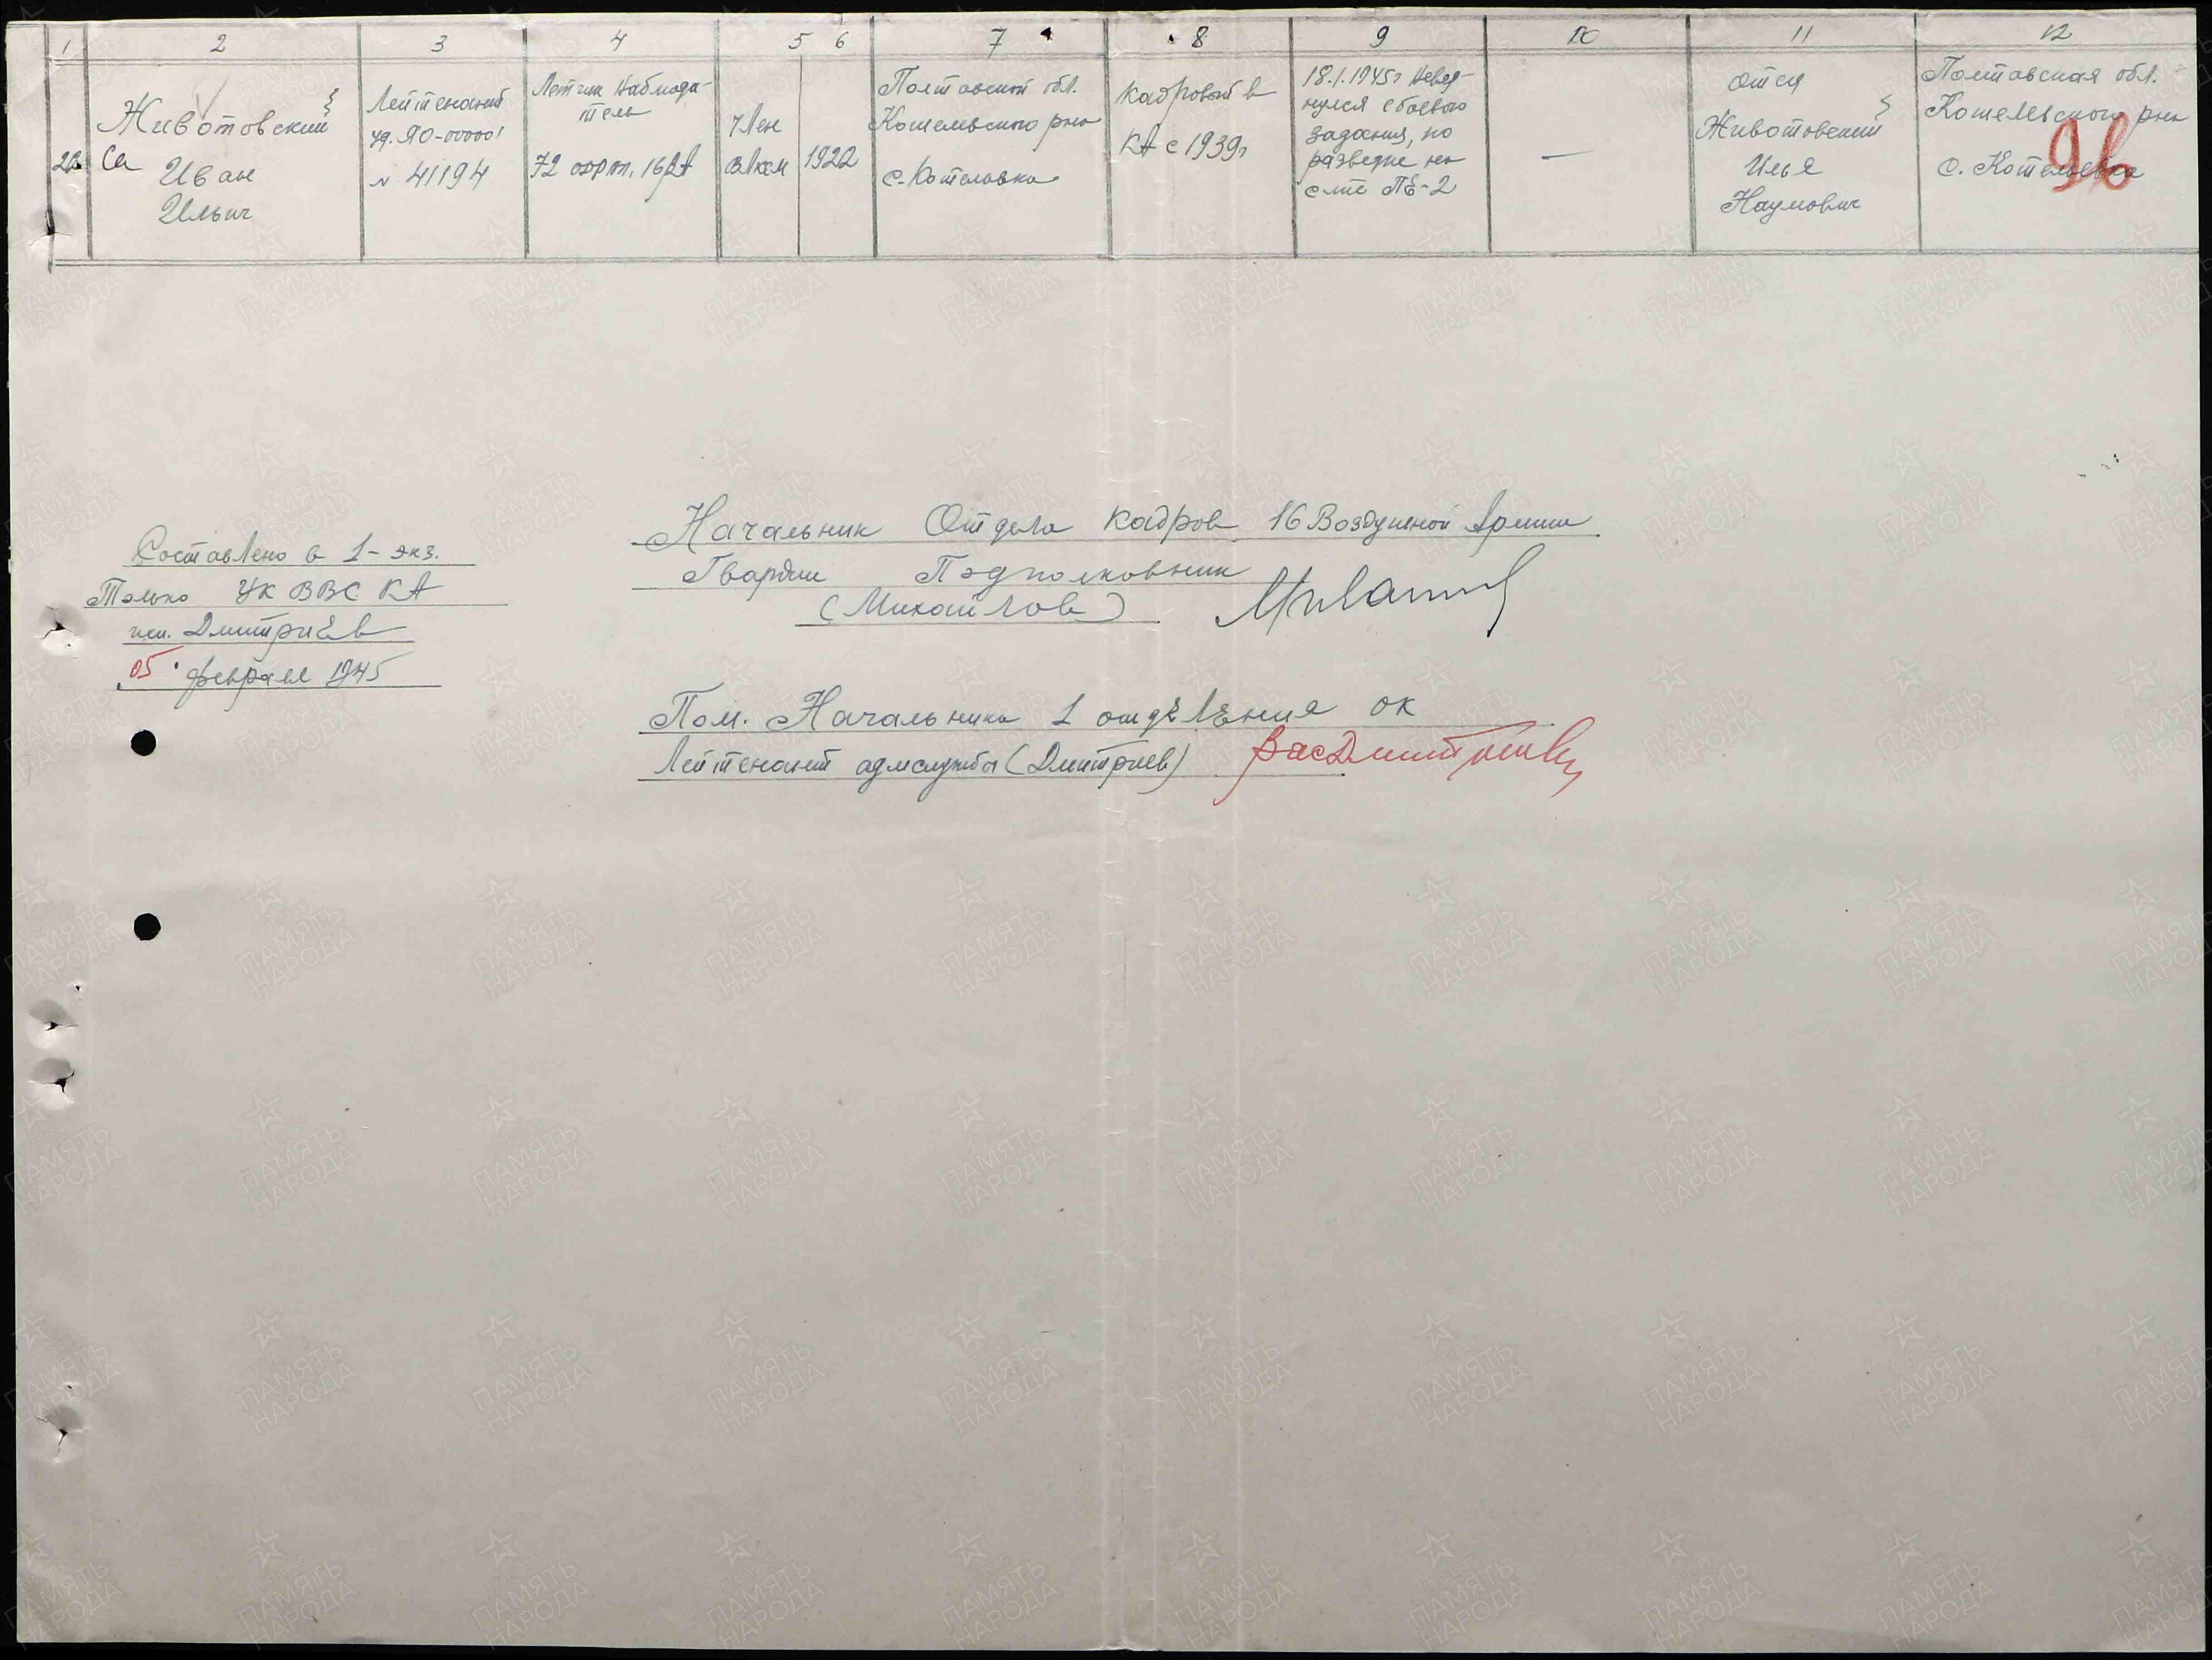 1 2 3 4 5 6 7 8 9 10 11 12
22.
Са
Животовский
Иван
Ильич
Лейтенант
уд. ЯО-00000!
N 41194
Летчик Наблюда-
тель
72 оорап. 16ВА
Член
ВЛКСМ
1922
Полтавской обл.
Котелевского р-на
с. Котелевка
Кадровый в
КА с 1939г
18.1.1945г Невер-
нулся с боевого
задания, по
разведке на
с-лте ПЕ-2
—
отец
Животовский
Илья
Наумович
Полтавская обл.
Котелевского р-на
с. Котелевка
96
Составлено в 1-экз.
Только УК ВВС КА
исп. Дмитриев
"05" февраля 1945
Начальник Отдела Кадров 16 Воздушной Армии
Гвардии Подполковник
(Михайлов)
Пом. Начальника 1 отделения ОК
Лейтенант адмслужбы (Дмитриев)
ПАМЯТЬ
НАРОДА